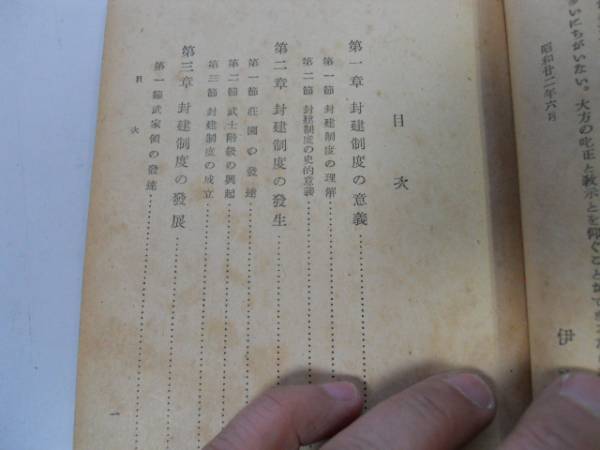 多いにちがいない。大方の叱正と教示とを仰ぐこと
昭和廿二年六月
伊
目次
第一章 封建制度の意義
第一節 封建制度の理解
第二節 封建制度の史的意義
第二章 封建制度の發生
第一節 莊園の發達
第二節 武士階級の興起
第三節 封建制度の成立
第三章 封建制度の發展
第一節 武家領の發達
目次
一